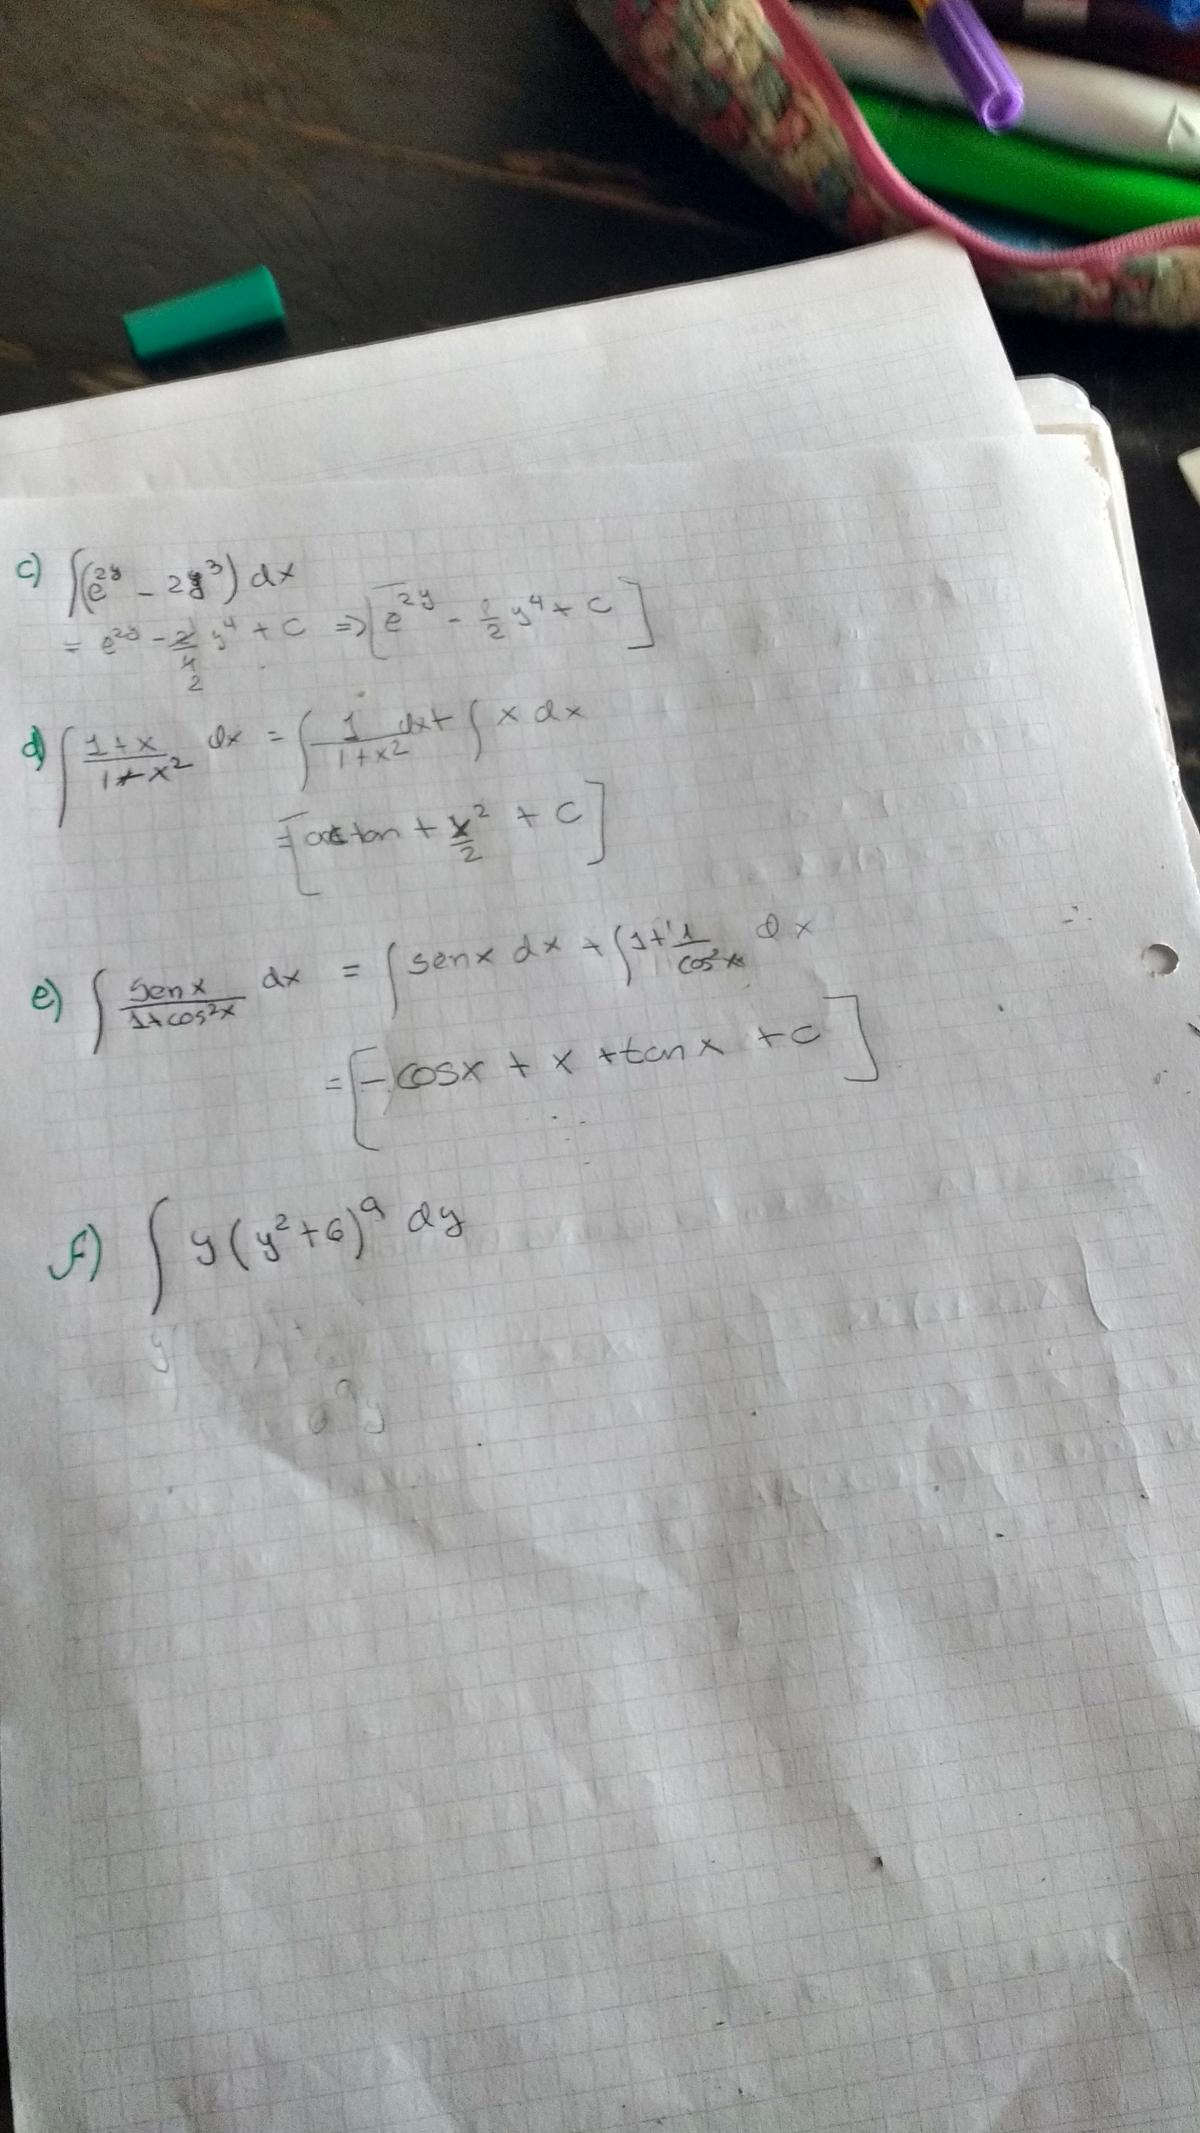 c) ∫(e^2y - 2y^3) dx
= e^2y - 2/4 y^4 + c ⇒ [e^2y - 1/2 y^4 + c]
2
d) ∫ (1+x)/(1+x^2) dx = ∫ 1/(1+x^2) dx + ∫ x dx
= [arctan + x^2/2 + c]
e) ∫ senx/(1+cos^2x) dx = ∫ senx dx + ∫ 1+1/cos^2x dx
= [-cosx + x + tanx + c]
f) ∫ y(y^2+6)^9 dy